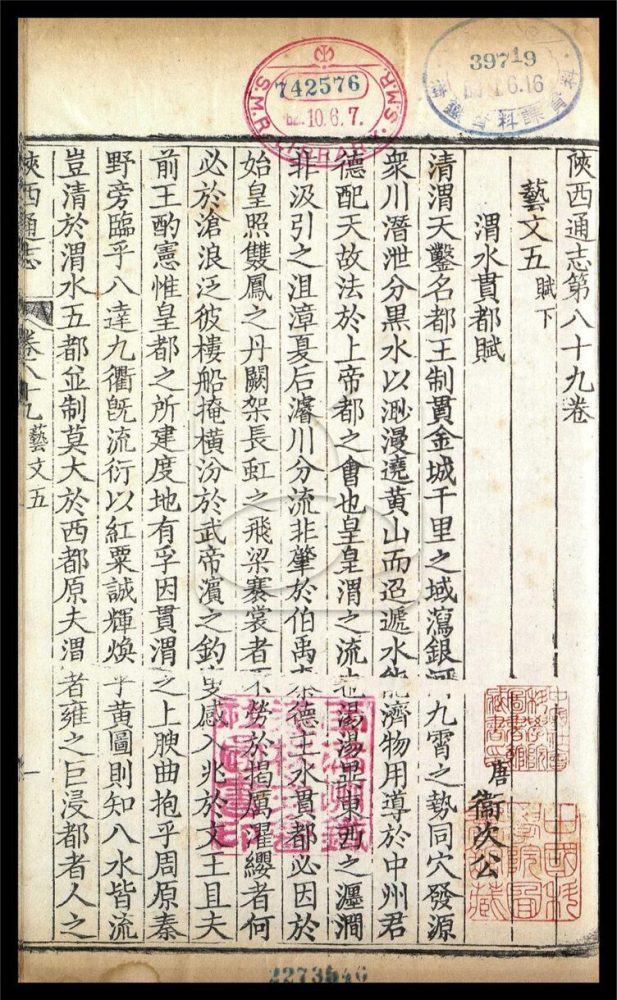 陝西通志第八十九卷
藝文五 賦下
渭水貫都賦
唐 喬次公
清渭天鑿名都王制貫金城千里之域瀉銀河九霄之勢同穴發源
衆川潛泄分黒水以渺漫遶黄山而迢遞水能濟物用導於中州君
德配天故法於上帝都之會也皇皇渭之流也湯湯異東西之瀍澗
非汲引之沮漳夏后濬川分流非肇於伯禹秦德王水貫都必因於
始皇照雙鳳之丹闕架長虹之飛梁褰裳者不勞於揭厲濯纓者何
必於滄浪泛彼樓船掩橫汾於武帝濱之釣叟感入兆於文王且夫
前王酌憲惟皇都之所建度地有孚因貫渭之上腴曲抱乎周原秦
野旁臨乎八達九衢旣流衍以紅粟誠輝煥乎黄圖則知八水皆流
豈清於渭水五都並制莫大於西都原夫渭者雍之巨浸都者人之
陝西通志 卷八十九 藝文五
742576
S.M.R. LIBRARY S.M.R.
10.6.7.
39719
6.16
2273546